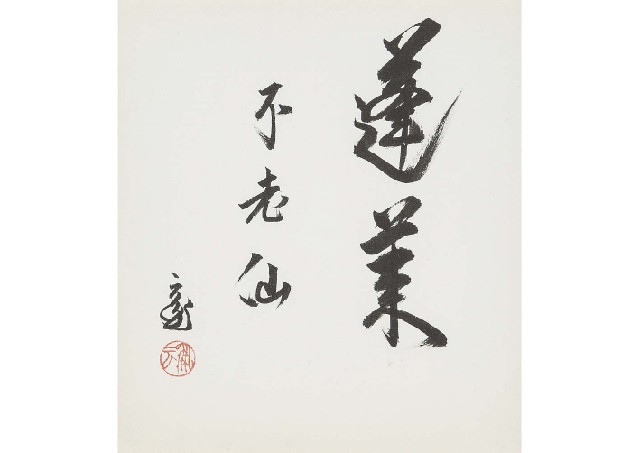 蓬莱
不老仙